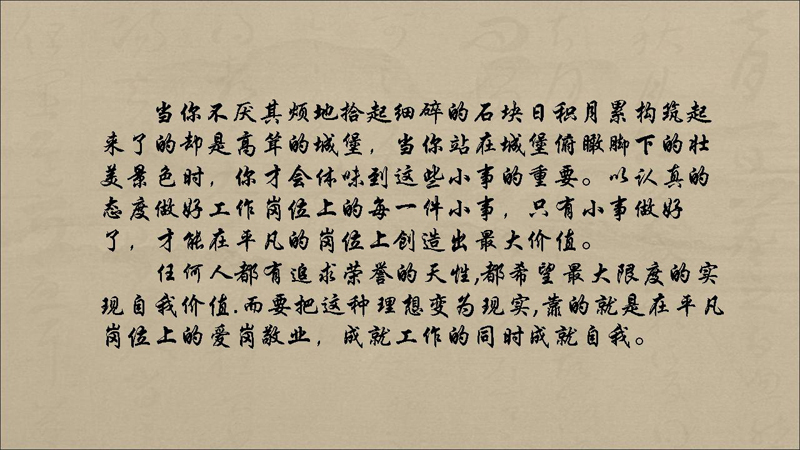 当你不厌其烦地拾起细碎的石块日积月累构筑起
来了的却是高耸的城堡，当你站在城堡俯瞰脚下的壮
美景色时，你才会体味到这些小事的重要。以认真的
态度做好工作岗位上的每一件小事，只有小事做好
了，才能在平凡的岗位上创造出最大价值。
任何人都有追求荣誉的天性,都希望最大限度的实
现自我价值.而要把这种理想变为现实,靠的就是在平凡
岗位上的爱岗敬业，成就工作的同时成就自我。